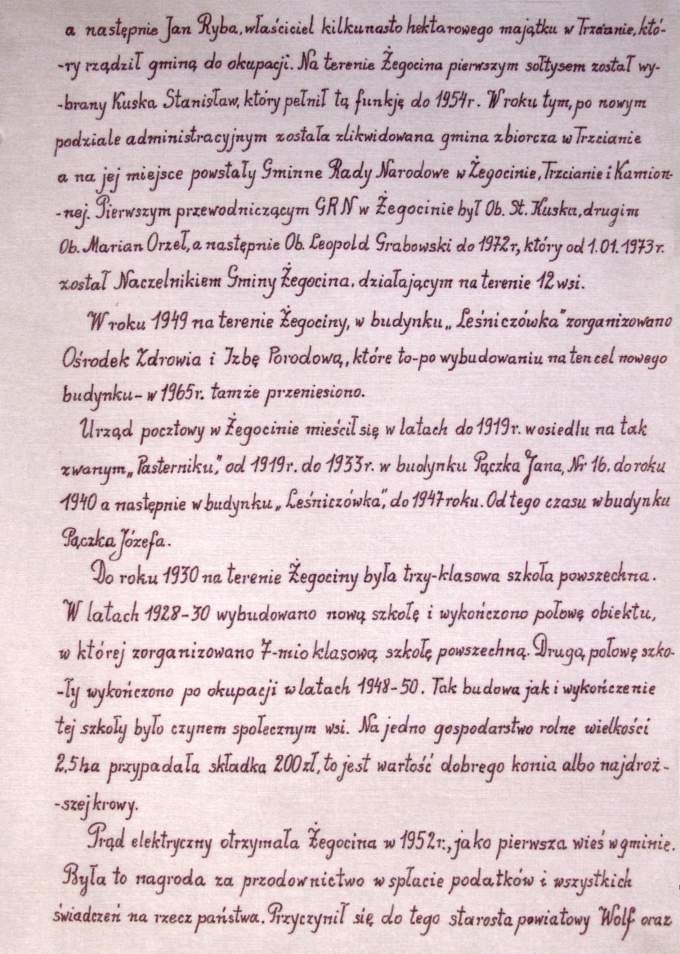 a następnie Jan Ryba, właściciel kilkunasto hektarowego majątku w Trzcianie, któ-
-ry rządził gminą do okupacji. Na terenie Żegocina pierwszym sołtysem został wy-
-brany Kuska Stanisław, który pełnił tą funkję do 1954r. W roku tym, po nowym
podziale administracyjnym została zlikwidowana gmina zbiorcza w Trzcianie
a na jej miejsce powstały Gminne Rady Narodowe w Żegocinie, Trzcianie i Kamion-
-nej. Pierwszym przewodniczącym GRN w Żegocinie był Ob. St. Kuska, drugim
Ob. Marian Orzeł, a następnie Ob. Leopold Grabowski do 1972r, który od 1.01.1973r.
został Naczelnikiem Gminy Żegocina, działającym na terenie 12 wsi.
W roku 1949 na terenie Żegociny, w budynku „Leśniczówka" zorganizowano
Ośrodek Zdrowia i Izbę Porodową, które to-po wybudowaniu na ten cel nowego
budynku- w 1965r. tamże przeniesiono.
Urząd pocztowy w Żegocinie mieścił się w latach do 1919r. w osiedlu na tak
zwanym „Pasterniku", od 1919r. do 1933r. w budynku Pączka Jana, Nr 16. do roku
1940 a następnie w budynku „Leśniczówka", do 1947 roku. Od tego czasu w budynku
Pączka Józefa.
Do roku 1930 na terenie Żegociny była trzy-klasowa szkoła powszechna.
W latach 1928-30 wybudowano nową szkołę i wykończono połowę obiektu,
w której zorganizowano 7-mio klasową szkołę powszechną. Drugą połowę szko-
-ły wykończono po okupacji w latach 1948-50. Tak budowa jak i wykończenie
tej szkoły było czynem społecznym wsi. Na jedno gospodarstwo rolne wielkości
2,5ha przypadała składka 200zł, to jest wartość dobrego konia albo najdroż-
-szej krowy.
Prąd elektryczny otrzymała Żegocina w 1952r., jako pierwsza wieś w gminie.
Była to nagroda za przodownictwo w spłacie podatków i wszystkich
świadczeń na rzecz państwa. Przyczynił się do tego starosta powiatowy Wolf oraz